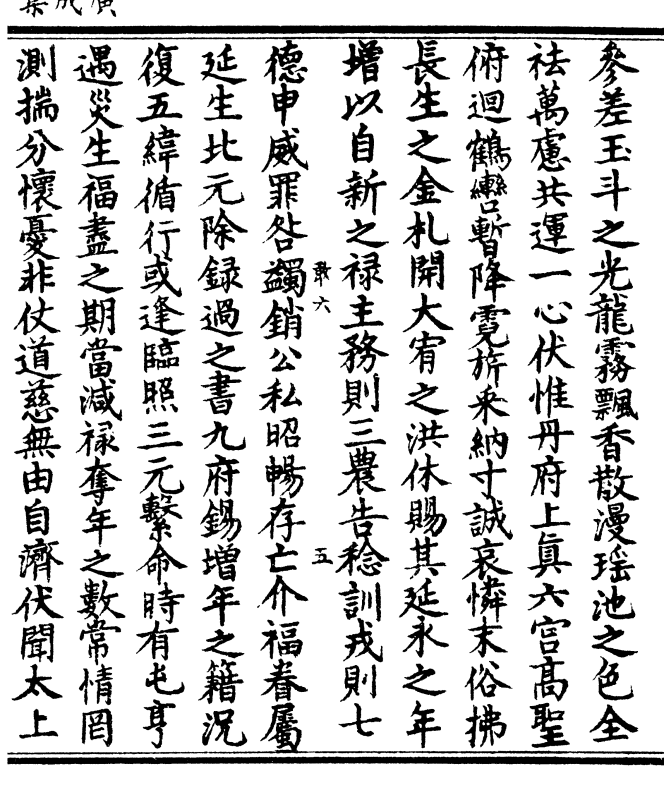 廣成集
參差玉斗之光龍霧飄香散漫瑶池之色全
祛萬慮共運一心伏惟丹府上真六宫高聖
俯迴鶴轡暫降霓旂采納寸誠哀憐末俗拂
長生之金札開大宥之洪休賜其延永之年
增以自新之禄主務則三農告稔訓戎則七
五
德申威罪咎蠲銷公私昭暢存亡介福眷屬
敢六
延生比元除録過之書九府錫增年之籍況
復五緯循行或逢臨照三元繫命時有屯亨
遇災生福盡之期當減禄奪年之數常情罔
測揣分懷憂非仗道慈無由自濟伏聞太上